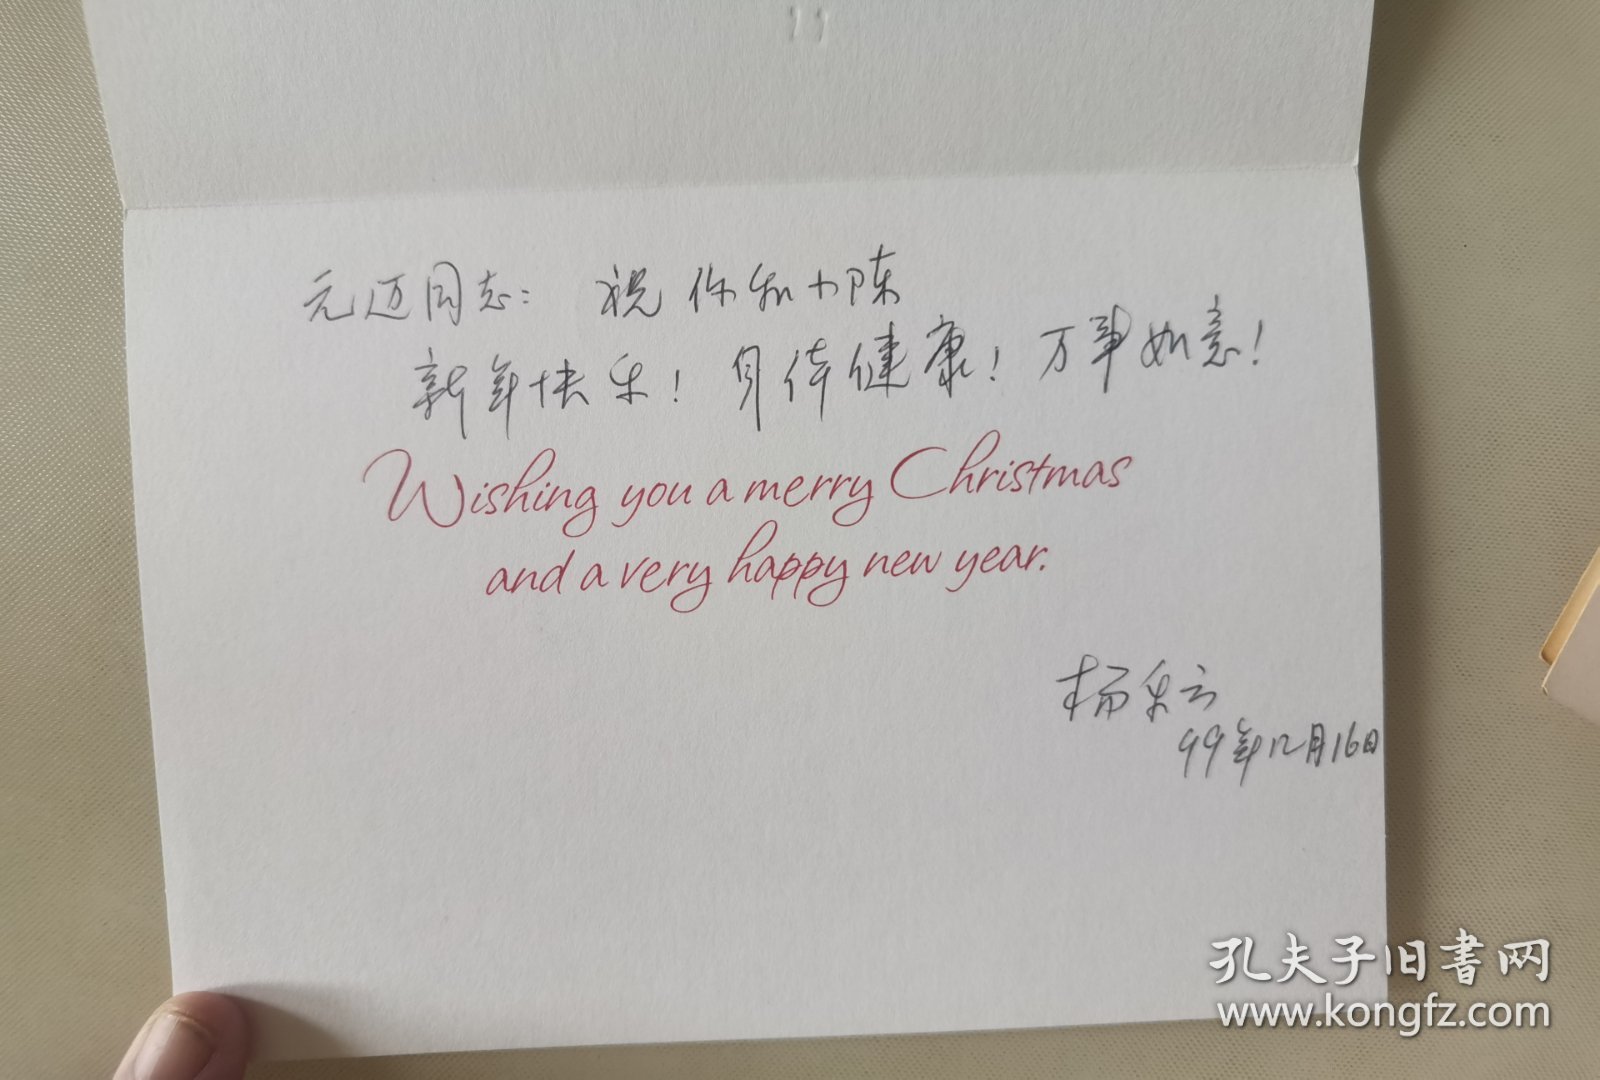 元迈同志： 祝你和小陈
新年快乐！身体健康！万事如意！
Wishing you a merry Christmas
and a very happy new year.
杨乐云
99年12月16日
孔夫子旧书网
www.kongfz.com